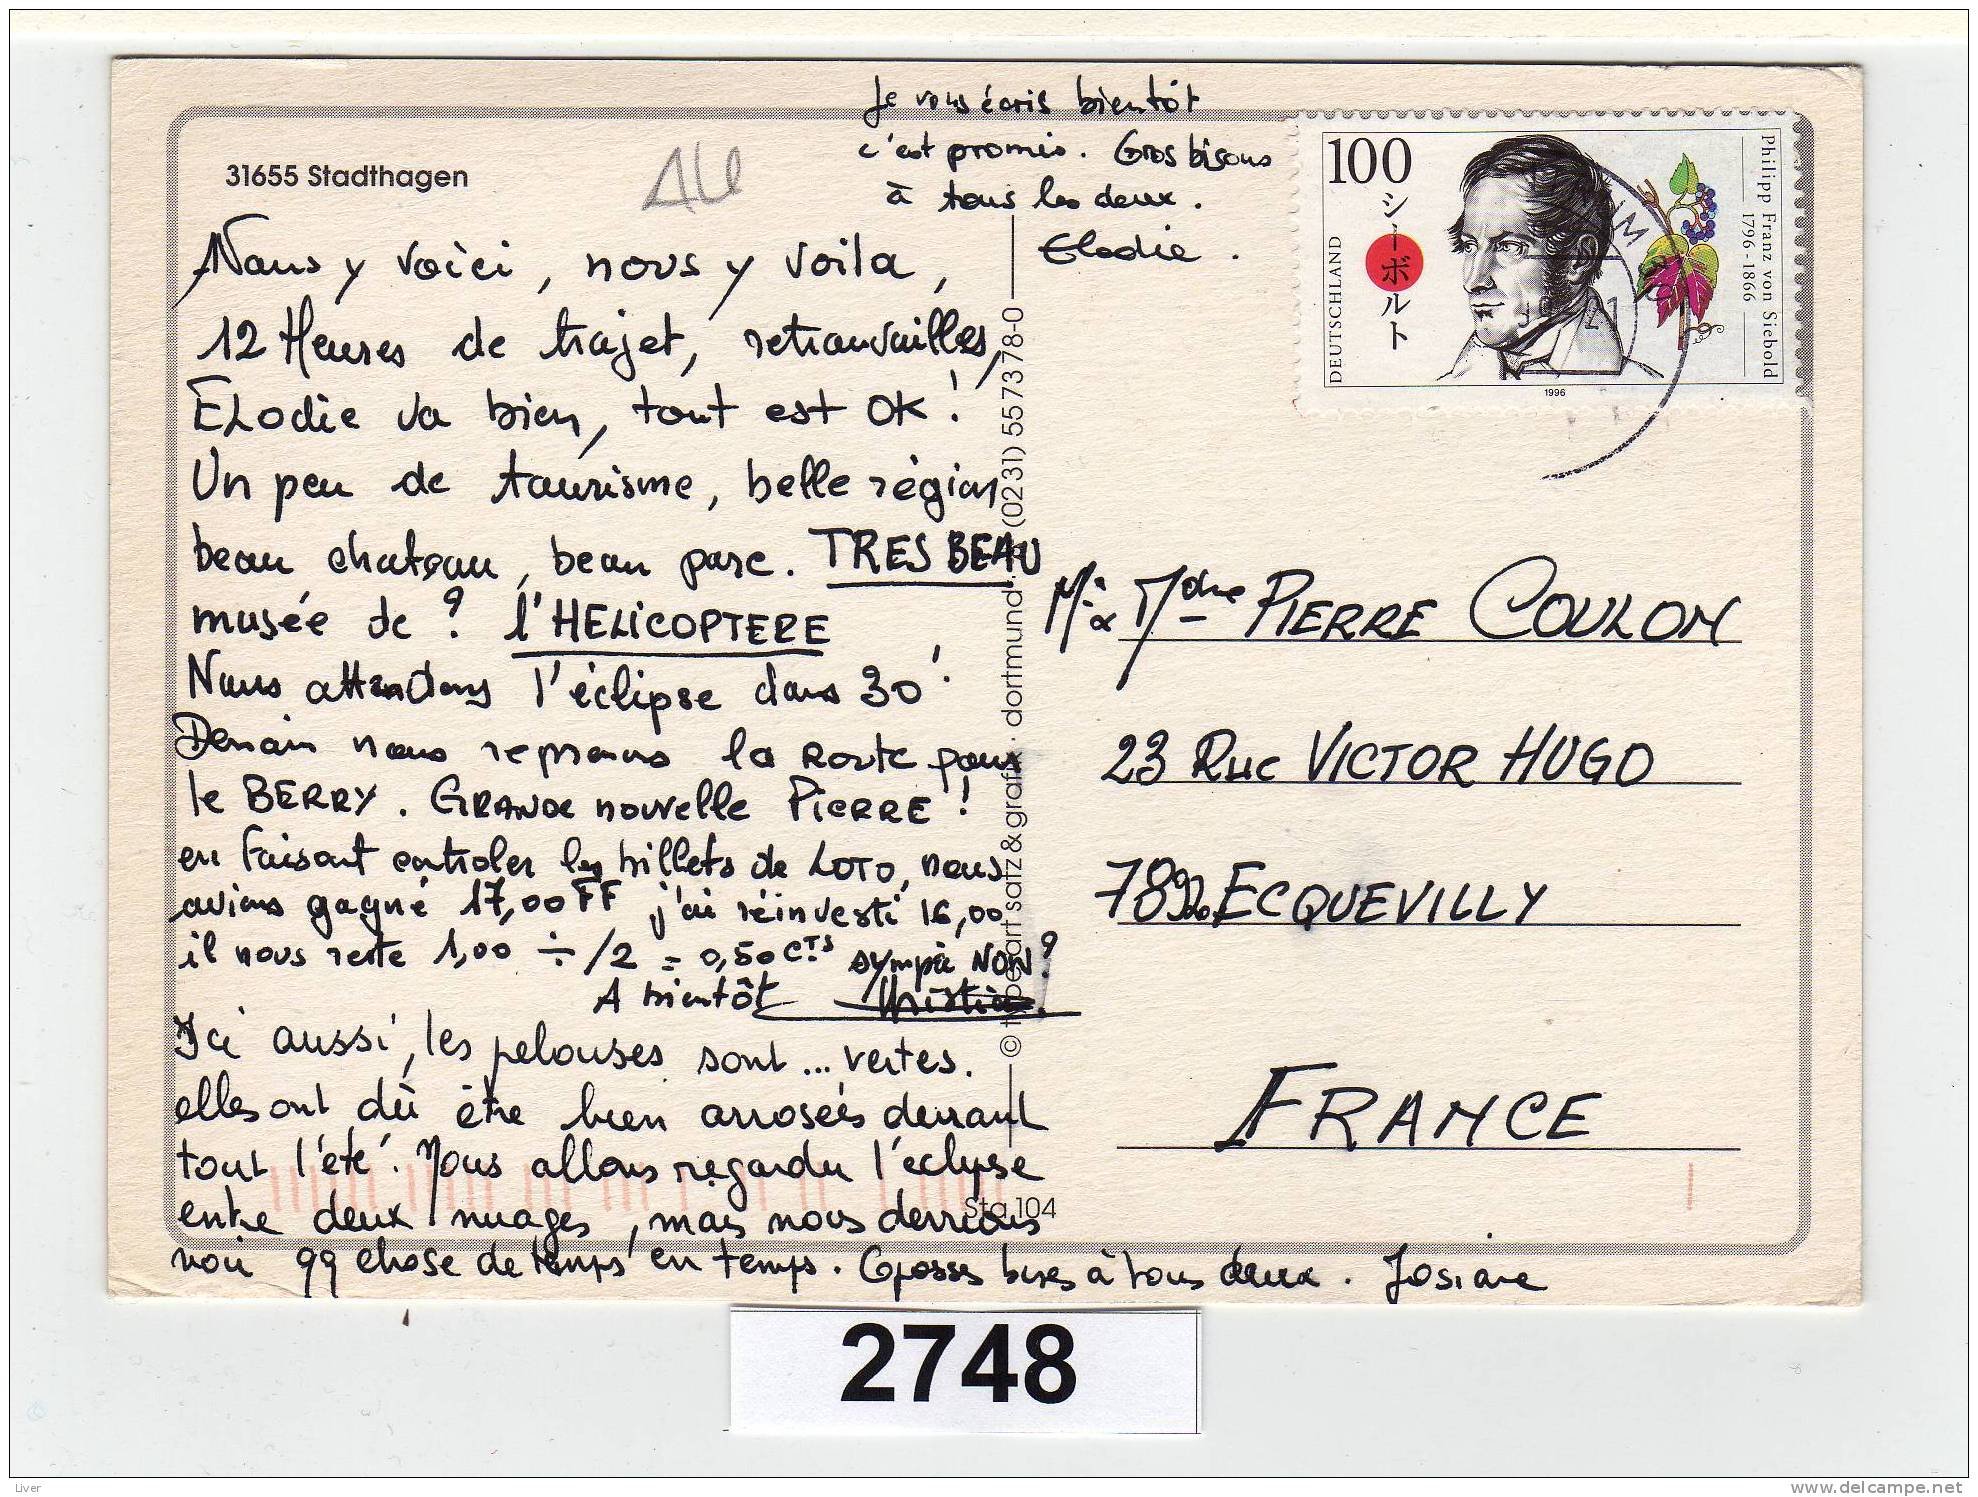 Je vous écris bientôt
c'est promis. Gros bisous
à tous les deux.
Elodie.
31655 Stadthagen
Nous y voici, nous y voila,
12 Heures de trajet, retrouvailles,
ELodie va bien, tout est OK!
Un peu de tourisme, belle région
beau chateau, beau parc. TRES BEAU
musée de ? l'HELICOPTERE
Nous attendons l'éclipse dans 30'
Demain nous reprenons la Route pour
le BERRY. GRANDE nouvelle PIERRE!
en faisant controler les billets de LOTO, nous
avions gagné 17,00 FF j'ai réinvesti 16,00
il nous reste 1,00 ÷ /2 = 0,50 CTS sympa NON?
A bientôt
Ici aussi, les pelouses sont... vertes.
elles ont dû être bien arrosées durant
tout l'été. Nous allons regarder l'éclipse
entre deux nuages, mais nous devrions
voir qq chose de temps en temps. Grosses bises à tous deux. Josiane
100
シーボルト
DEUTSCHLAND
Philipp Franz von Siebold
1796 - 1866
1996
21
Mr & Mdme PIERRE COULON
23 Rue VICTOR HUGO
ECQUEVILLY
FRANCE
© typeart satz&grafix · dortmund · (0231) 557378-0
Sta 104
2748
Liver
www.delcampe.net